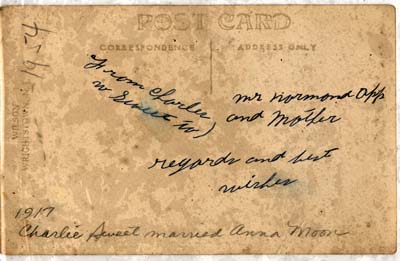 POST CARD
CORRESPONDENCE
ADDRESS ONLY
1954
WILSON
WRIGHTSTOWN
From Charlie
w Sweet to)
mr Normond Opp
and Mother
regards and best
wishes
1917
Charlie Sweet married Anna Moon